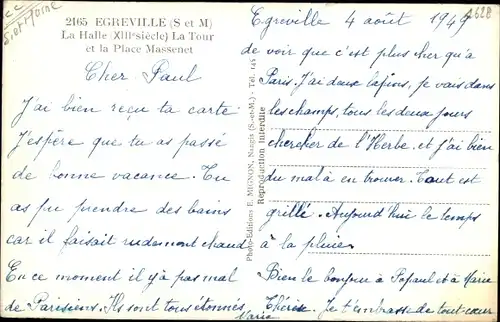 2165 EGREVILLE (S et M)
La Halle (XIIIᵉ siècle) La Tour
et la Place Massenet
Cher Paul
J'ai bien reçu ta carte
J'espère que tu as passé
de bonne vacance. Tu
as pu prendre des bains
car il faisait rudement chaud
En ce moment il y a pas mal
de Parisiens. Ils sont tous étonnés
Photo-Editions E. MIGNON, Nangis (S.-et-M.) - Tél. 145
Reproduction interdite
Egreville 4 août 1949
de voir que c'est plus cher qu'à
Paris. J'ai deux lapins, je vais dans
les champs, tous les deux jours
chercher de l'Herbe et j'ai bien
du mal à en trouver. Tout est
grillé. Aujourd'hui le temps
à la pluie.
Bien le bonjour à Papaul et à Marie
Thérèse. Je t'embrasse de tout cœur